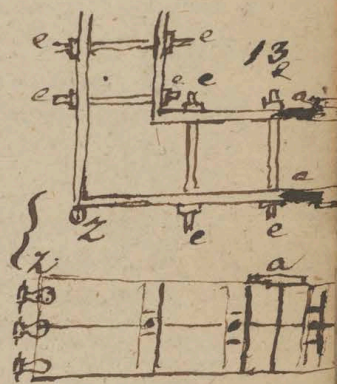 e e
13
e e e e
a
Z a
e e
Z a